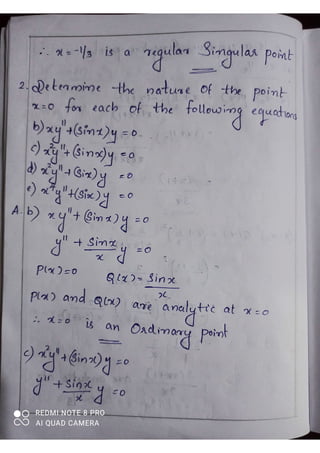 ∴ x = -1/3 is a regular Singular point
2. Determine the nature of the point
x=0 for each of the following equations
b) xy'' + (sinx)y = 0.
c) x²y'' + (sinx)y = 0
d) x³y'' + (sinx)y = 0
e) x⁴y'' + (sinx)y = 0
A. b) xy'' + (sinx)y = 0
y'' + sinx/x y = 0
P(x) = 0 Q(x) = sinx/x
P(x) and Q(x) are analytic at x=0
∴ x=0 is an Ordinary point
c) x²y'' + (sinx)y = 0
y'' + sinx/x y = 0
REDMI NOTE 8 PRO
AI QUAD CAMERA